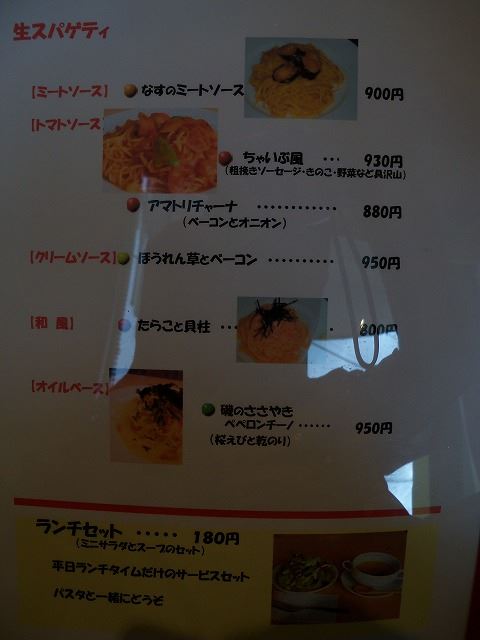 生スパゲティ
[ミートソース] なすのミートソース 900円
[トマトソース
ちゃいぶ風 ... 930円
(粗挽きソーセージ・きのこ・野菜など具沢山)
アマトリチャーナ ............ 880円
(ベーコンとオニオン)
[クリームソース] ほうれん草とベーコン .......... 950円
[和 風] たらこと貝柱 ... 800円
[オイルベース]
磯のささやき
ペペロンチーノ ...... 950円
(桜えびと乾のり)
ランチセット ..... 180円
(ミニサラダとスープのセット)
平日ランチタイムだけのサービスセット
パスタと一緒にどうぞ